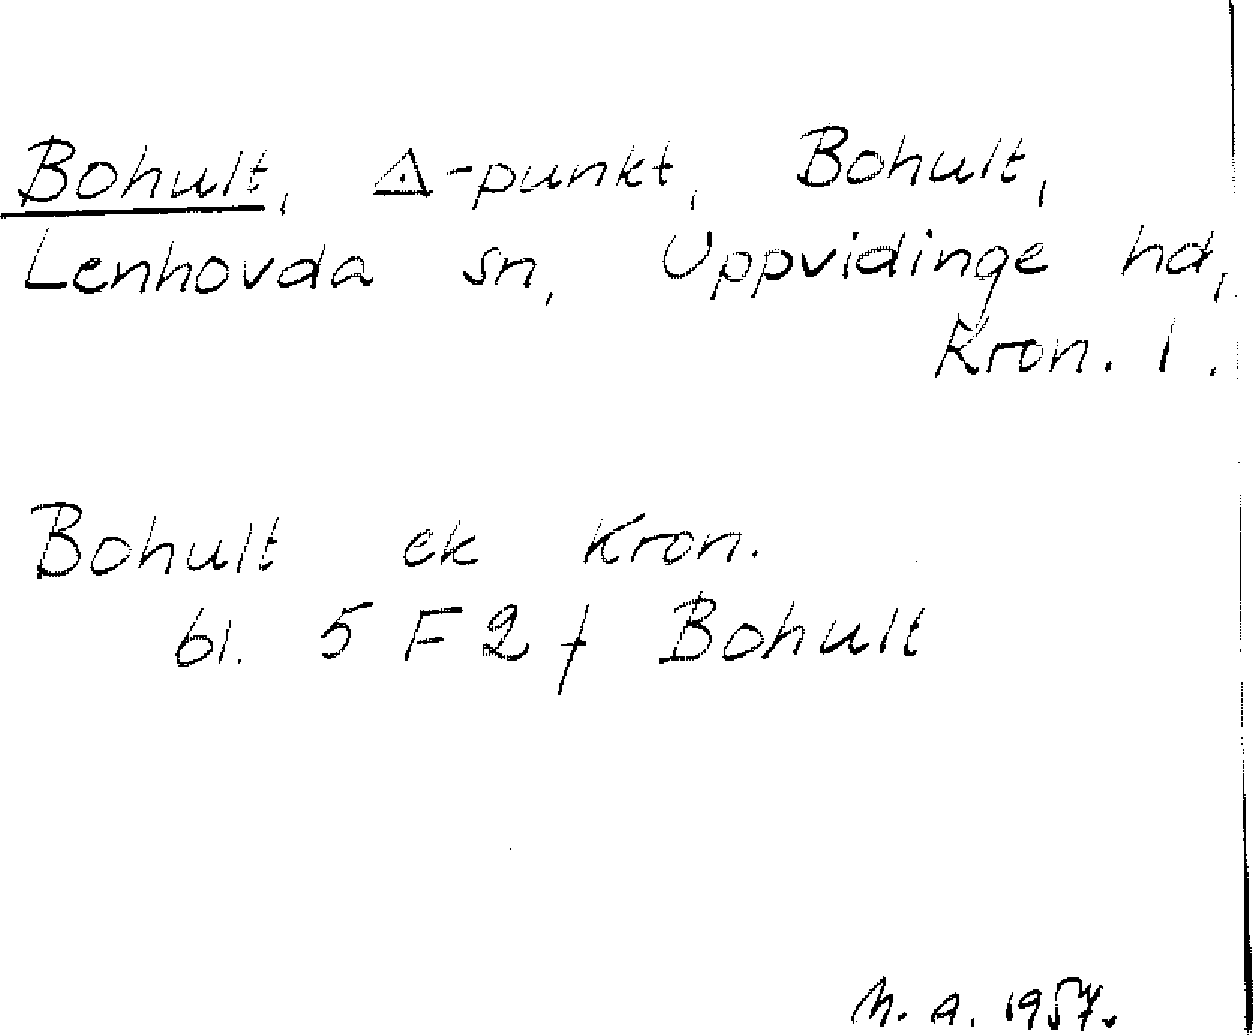 Bohult, ◬-punkt, Bohult,
Lenhovda sn, Uppvidinge hd,
Kron. l.
Bohult ek Kron.
bl. 5 F 2 f Bohult
N. A. 1957.